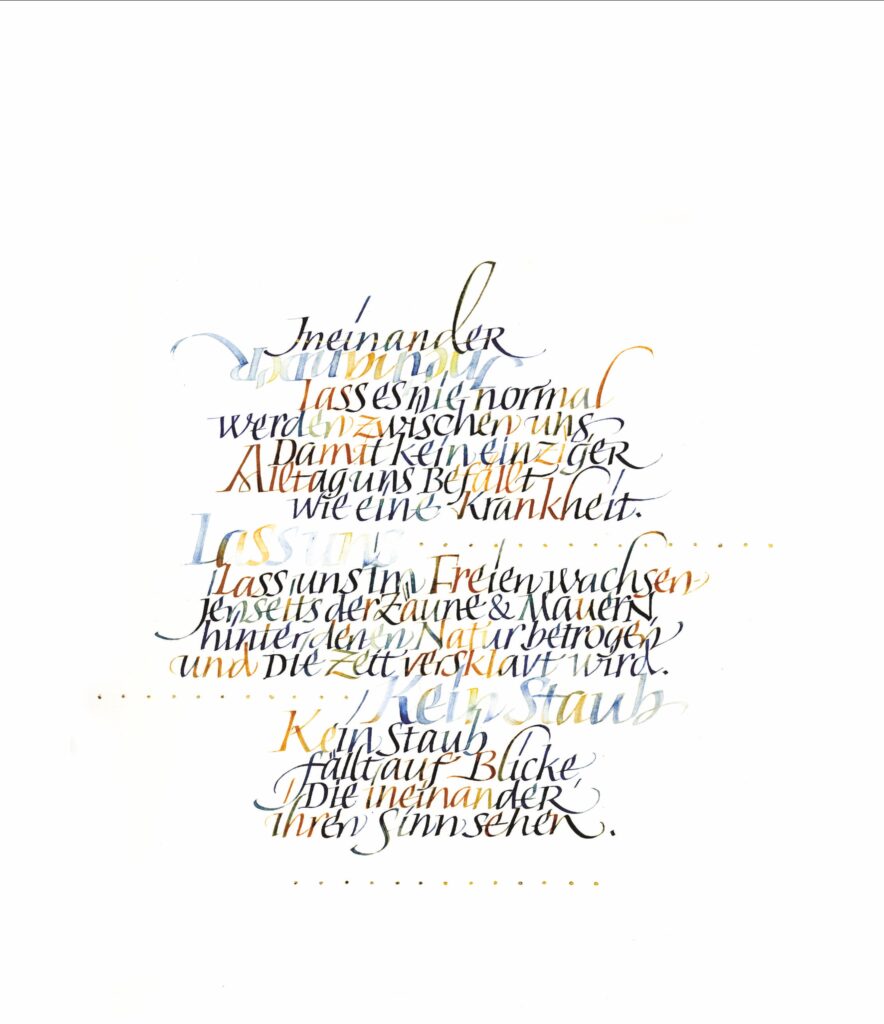 Ineinander
Ineinander
Lass es nie normal
werden zwischen uns,
Damit kein einziger
Alltag uns Befällt
wie eine Krankheit.
Lass uns
Lass uns im Freien wachsen
jenseits der Zäune & Mauern
hinter denen Natur betrogen
und Die Zeit versklavt wird.
Kein Staub
Kein Staub
fällt auf Blicke,
Die ineinander
ihren Sinn sehen.